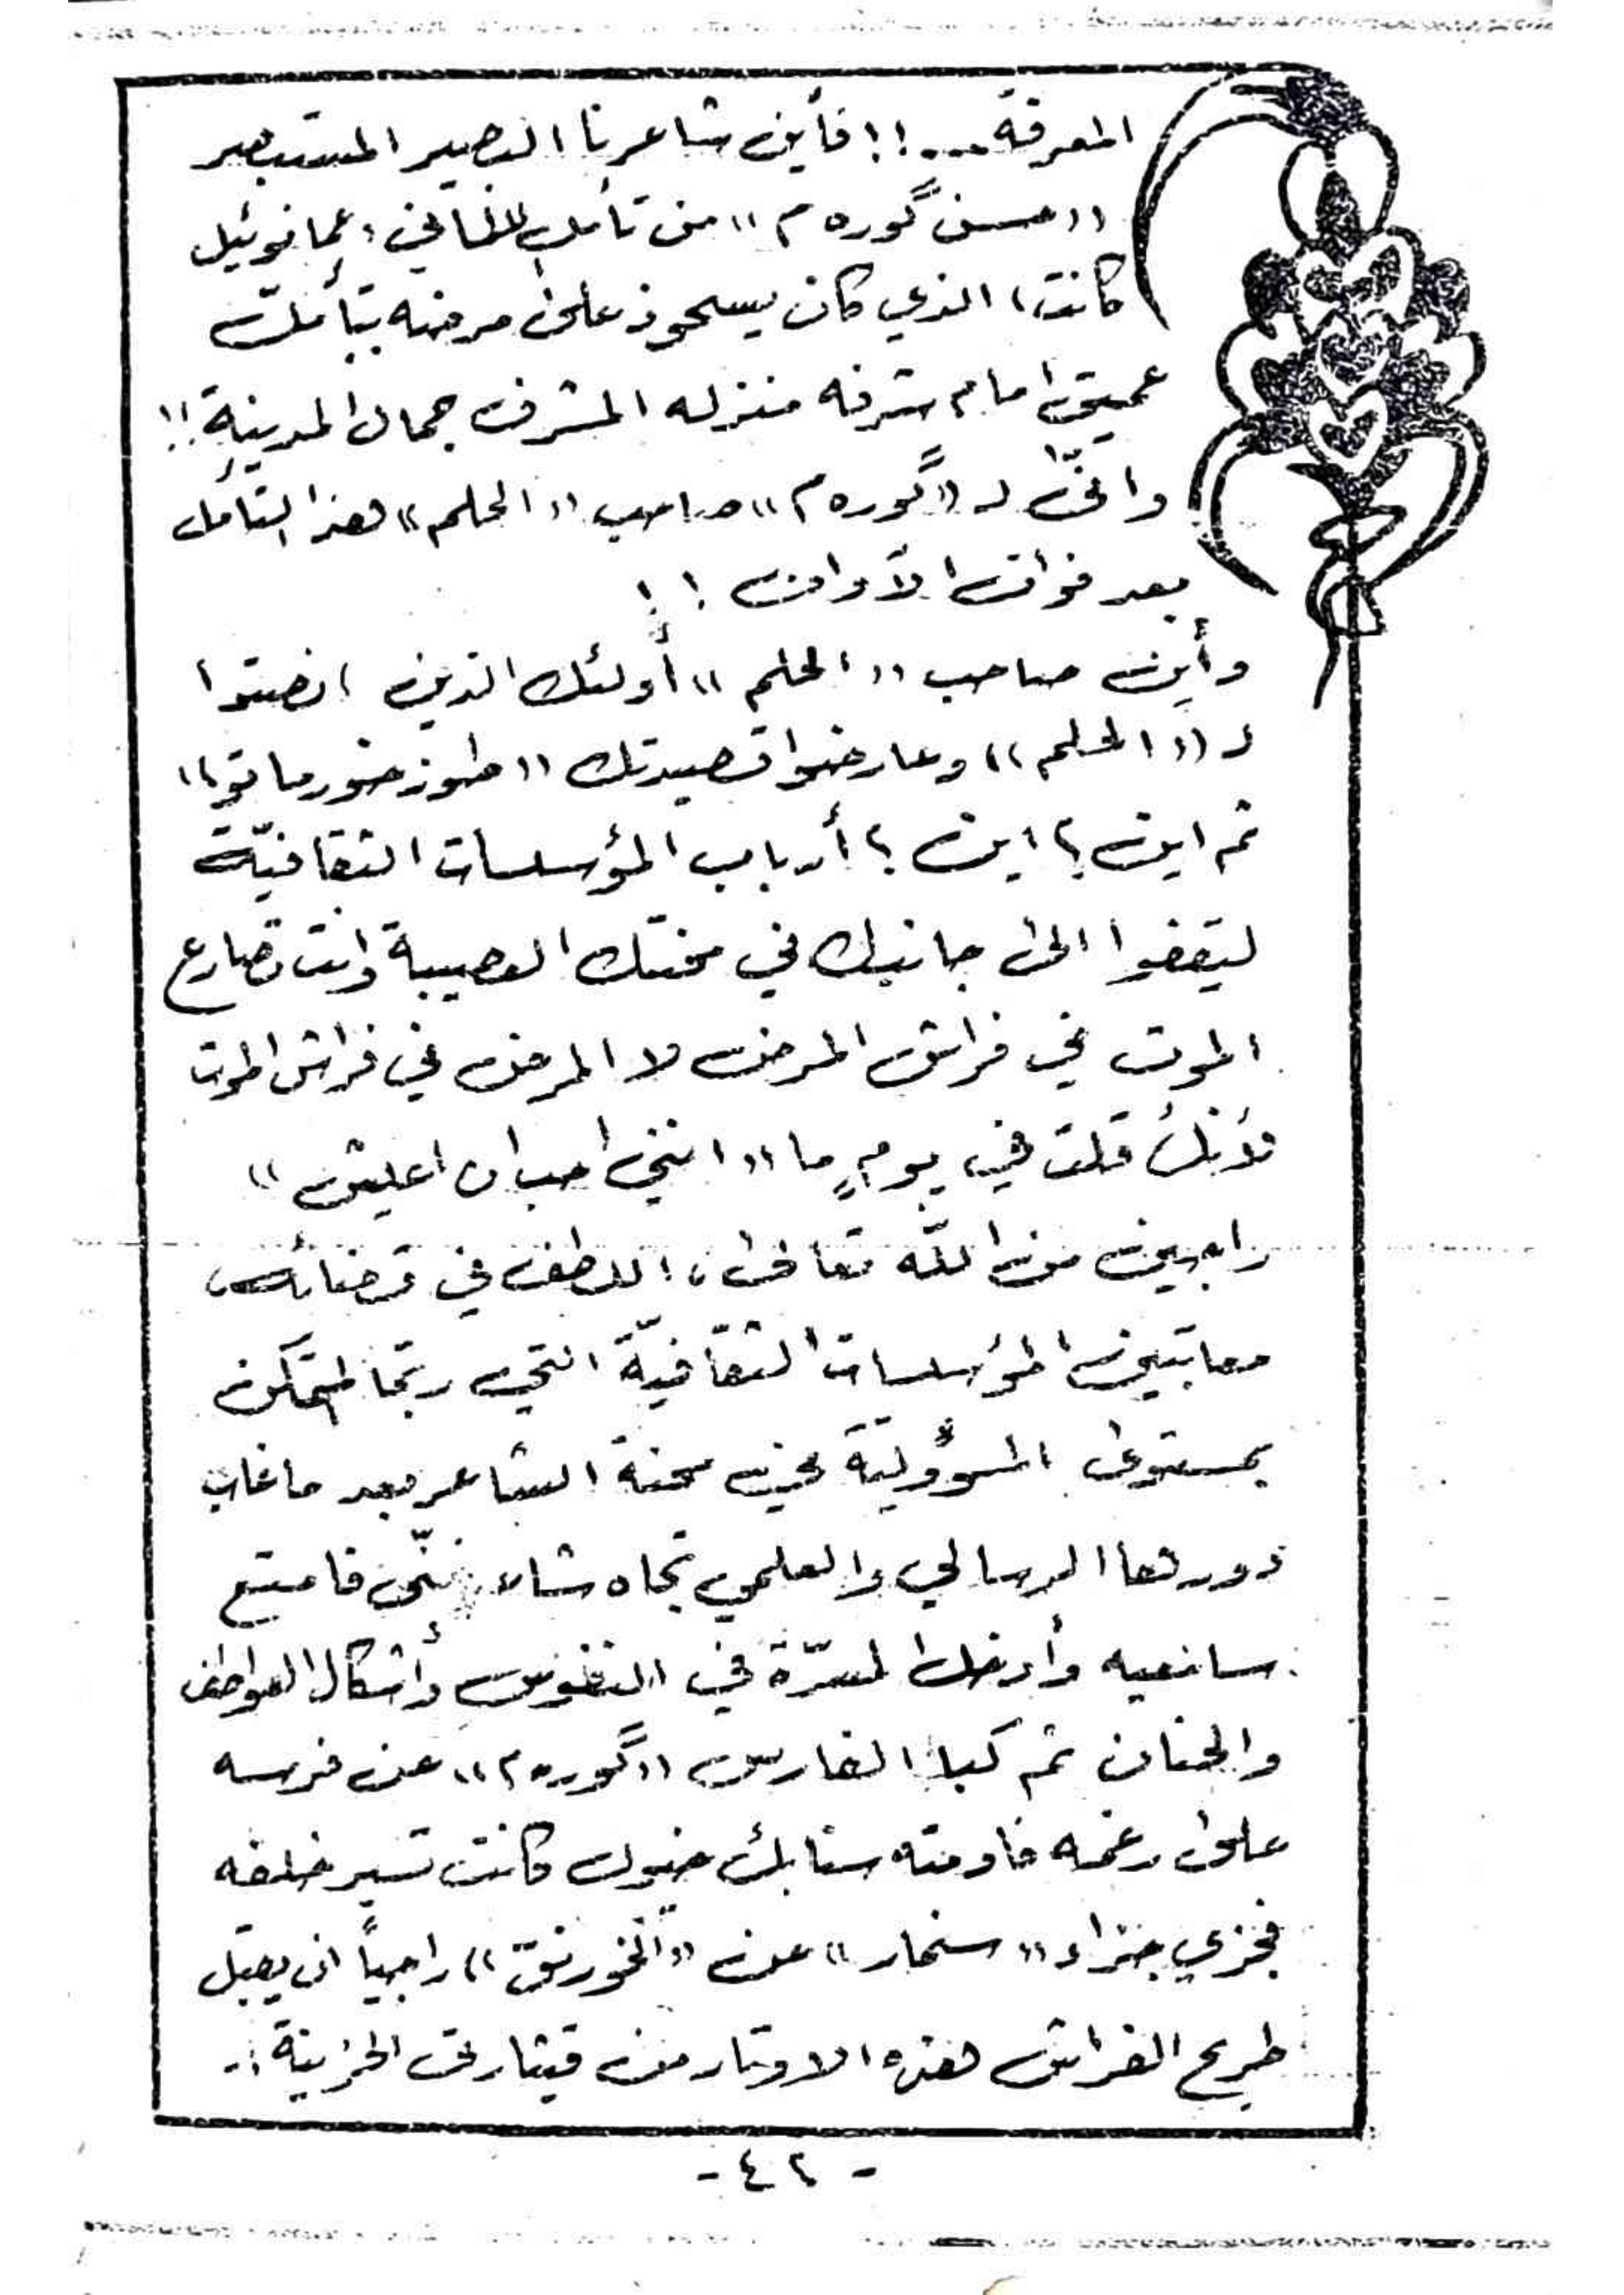 المعرفة...!! فأين شاعرنا البصير المستبصر
«حسن گوره م» من تأمل الفاني؛ عمانوئيل
كانت، الذي كان يستحوذ على مرضه بتأمل
عميق امام شرفه منزله المشرف جمال المدينة!!
وانّى لـ «گوره م» صاحب «الحلم» هذا التأمل
بعد فوات الأوان !!
وأين صاحب «الحلم» أولئك الذين انصتوا
لـ «الحلم» وعارضوا قصيدتك «طوز خورماتو»
ثم اين؟ اين؟ أرباب المؤسسات الثقافيّة
ليقفوا الى جانبك في محنتك العصيبة وانت تصارع
الموت في فراش المرض لا المرض في فراش الموت
لأنك قلت في يومٍ ما «انني احب ان اعيش»
راجين من اللّه تعالى، اللطف في قضائه،
معاتبين المؤسسات الثقافيّة التي ربّما لم تكن
بمستوى المسؤوليّة عن محنة الشاعر بعد ما غاب
دورها الرسالي والعلمي تجاه شاعر غنّى فامتع
سامعيه وأدخل المسرّة في النفوس وأشكال العواطف
والحنان ثم كبا الفارس «گوره م» عن فرسه
على رغمه فاومته سنابك خيول كانت تسير خلفه
فجزي جزاء «سنمار» عن «الخورنق» راجياً ان يقبل
طريح الفراش هذه الاوتار من قيثارتي الحزينة :-
- ٤٢ -